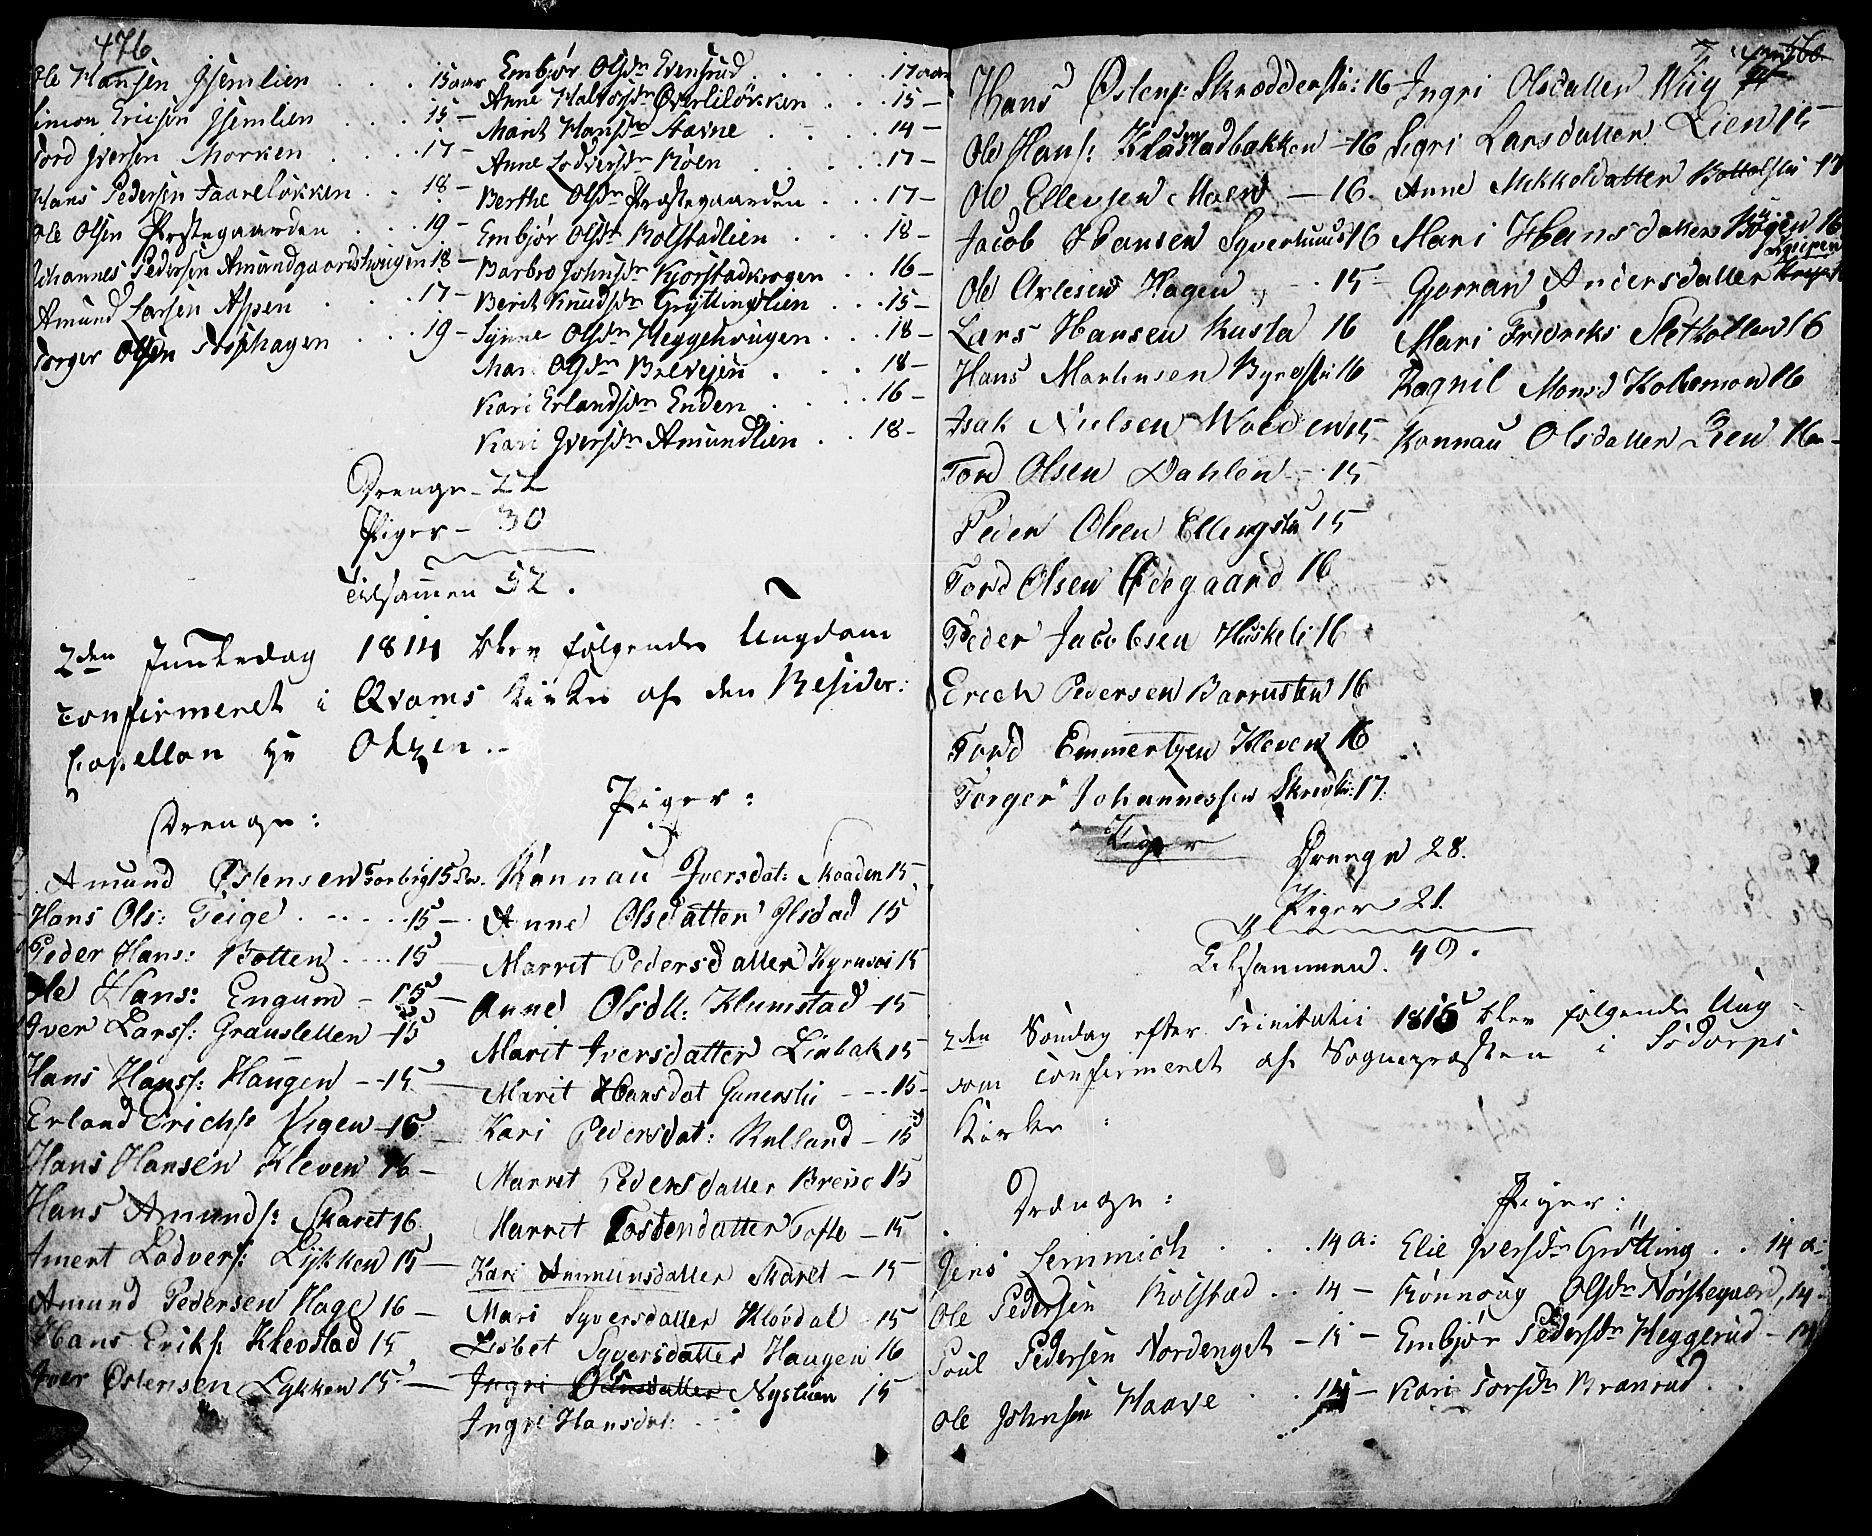 476
Ole Hansen Jsemlien . . . 15 aar
Simon Ericsen Jsemlien . . . 15 -
Tord Iversen Morken . . . 17 -
Hans Pedersen Faareløkken . . 18 -
Ole Olsen Prestegaarden . . . 19 -
Johannes Pedersen Amundgaardshougen 18 -
Amund Larsen Aspen . . . 17 -
Torger Olsen . . 19 -
Embjør Olsdr Evensrud . . . 17 aar
Anne Halvorsdr Øverliløkken . . . 15 -
Marit Hansdr Stavne . . . 14 -
Anne Lodversdr Moen . . . 17 -
Berthe Olsdr Prestegaarden . . . 17 -
Embjør Olsdr Bolstadlien . . . 18 -
Barbro Johnsdr Kjorstadkrogen . . 16 -
Berit Knudsdr Gryttinglien . . . 15 -
Synne Olsdr Heggehougen . . . 18 -
Mari Olsdr Brevejen . . . 18 -
Kari Erlandsdr Enden . . . 16 -
Kari Iversdr Amundlien . . 18 -
Drenge - 22
Piger - 30
Tilsammen 52.
2den Juuledag 1814 blev følgende Ungdom
confirmeret i Qvams Kirke af den Resider:
Capellan Hr Olzen.
Drenge:
Amund Østensen Forbrig 15 Aar.
Hans Ols: Teige . . . 15 -
Peder Hans: Botten . . . 15 -
Ole Hans: Engum - 15 -
Iver Larss: Grausletten - 15
Hans Hanss: Haugen - 15 -
Erland Erichs: Vigen - 16 -
Hans Hansen Kleven 16 -
Hans Amunds: Skaret 16
Amert Lodvers: Lykken 15 -
Amund Pedersen Hage 16 -
Hans Eriks: Klevstad 15
Iver Østensen Lykken 15 -
Piger:
Rønnau Iversdat: Skaaden 15
Anne Olsdatter Ilstad 15
Marret Pedersdatter 15
Anne Olsdtt: Klumstad - 15
Marit Iversdatter Liabak 15
Marit Hansdat Gunerstu - - 15 -
Kari Pedersdat: Rulland - 15
Marret Pedersdatter 15
Marret Tostendatter Tofte - 15
Kari Ammunsdatter Skaret - 15 -
Mari Syversdatter Kløvdal - 15
Lisbet Syversdatter Haugen 16
Ingri Olsdatter Nystuen 15
Ingri Hansdat:
Hans Østens: Skrødderstu: 16
Ole Hans: Klåmstadbakken - 16
Ole Ellensen Moen - 16.
Jacob Hansen Syverhuus 16
Ole Arlesen Hagen - 15 -
Lars Hansen Rusta 16
Hans Martinsen Byrestu 16
Isak Nielsen Wolden 15
Tord Olsen Dahlen - 15
Peder Olsen Ellingstu 15
Tord Olsen Ødegaard 16
Peder Jacobsen Huskeli 16
Erich Pedersen Barrusten 16
Tord Emmertzen Kleven 16
Torger Johannessen 17.
Piger
Ingri Olsdatter Wiig
Sigri Larsdatter Lien 15
Anne Mikkeldatter 17
Mari Hansdatter Bøgen 16
Gjørran Andersdatter
Mari Fridreks Sletkollen 16
Ragnil Monsd Kollemon 16
Ronnau Olsdatter Lien 16 -
Drenge 28.
Piger 21.
Tilsammen. 49.
2den Søndag efter Trinitatis 1815 blev følgende Ung-
dom confirmeret af Sognepræsten i Sødorps
Kirke:
Drenge:
Jens Lemmich . . . 14 a:
Ole Pedersen Kolstad . . 14 -
Poul Pedersen Nordenget - 15 -
Ole Johnsen Haave . . 14 -
Piger:
Elie Iversdr Grøtting . . 14 a:
Rønnoug Olsdr Nørstegaard, 14 -
Embjør Pedersdr Heggerud - 14
Kari Torsdr Branrud . .